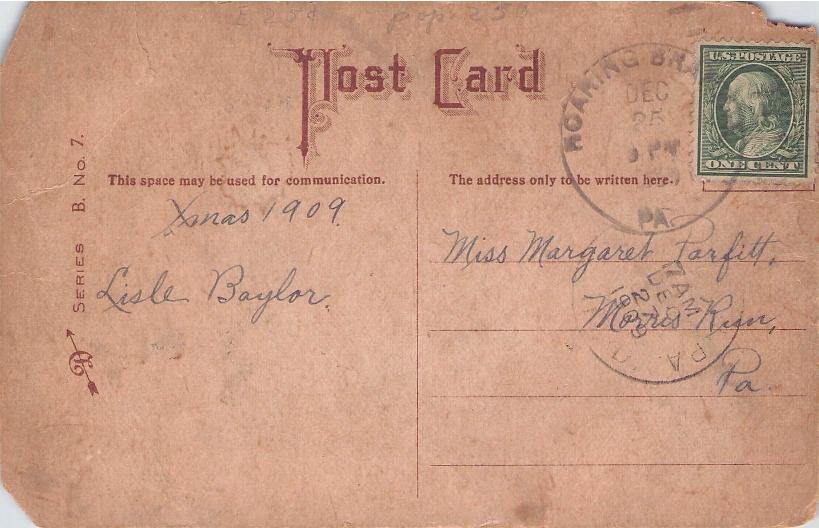 E258 pop. 250
Post Card
ROARING BRA
DEC
25
PM
PA.
U.S. POSTAGE
ONE CENT
SERIES B. No. 7.
This space may be used for communication.
The address only to be written here.
Xmas 1909.
Lisle Baylor.
Miss Margaret Parfitt,
Morris Run,
Pa.
7 AM
DEC
27
1909
PA